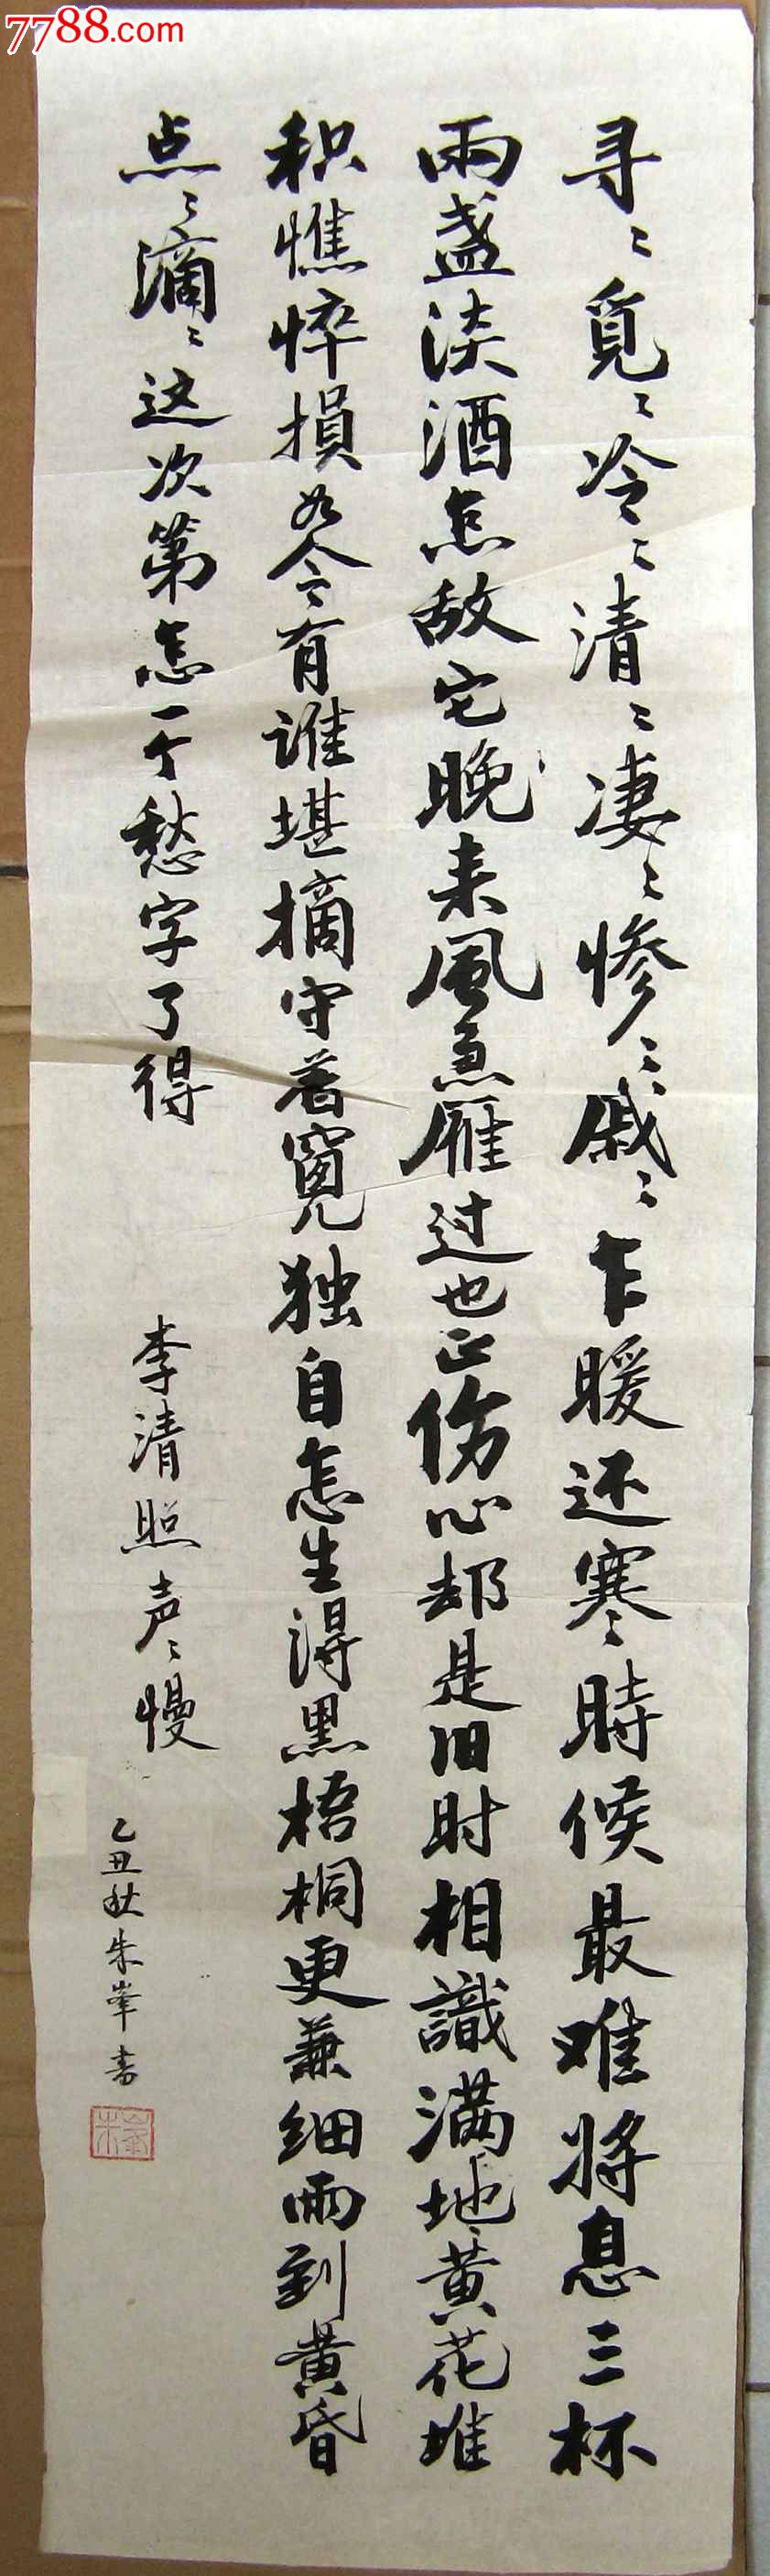 7788.com
寻〻覓〻冷〻清〻凄〻惨〻戚〻乍暖还寒〻時候最难将息三杯
兩盏淡酒怎敌它晚来風急雁过也正伤心却是旧时相識满地黄花堆
积憔悴損如今有谁堪摘守着窗儿独自怎生得黑梧桐更兼细雨到黄昏
点〻滴〻这次第怎一个愁字了得
李清照声〻慢
乙丑秋朱峯书